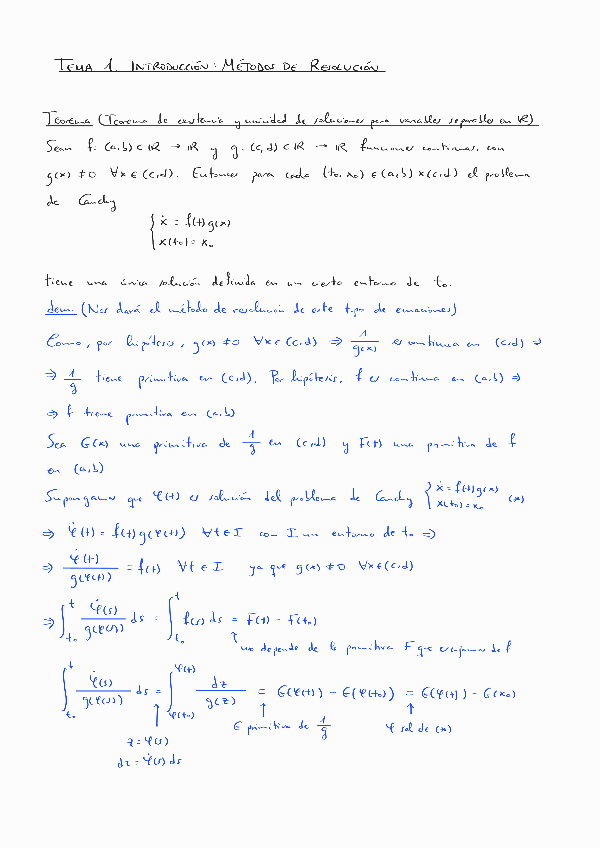 TEMA 1. INTRODUCCIÓN: MÉTODOS DE RESOLUCIÓN
Teorema (Teorema de existencia y unicidad de soluciones para variables separables en ℝ)
Sean f: (a,b) ⊂ ℝ → ℝ y g: (c,d) ⊂ ℝ → ℝ funciones continuas, con
g(x) ≠ 0 ∀x ∈ (c,d). Entonces para cada (t₀, x₀) ∈ (a,b) x (c,d) el problema
de Cauchy
{ ẋ = f(t) g(x)
x(t₀) = x₀
tiene una única solución definida en un cierto entorno de t₀.
dem. (Nos dará el método de resolución de este tipo de ecuaciones)
Como, por hipótesis, g(x) ≠ 0 ∀x ∈ (c,d) ⇒ 1/g(x) es continua en (c,d) ⇒
⇒ 1/g tiene primitiva en (c,d). Por hipótesis, f es continua en (a,b) ⇒
⇒ f tiene primitiva en (a,b)
Sea G(x) una primitiva de 1/g en (c,d) y F(t) una primitiva de f
en (a,b)
Supongamos que φ(t) es solución del problema de Cauchy { ẋ = f(t) g(x) x(t₀) = x₀ (*)
⇒ φ̇(t) = f(t) g(φ(t)) ∀t ∈ I con I un entorno de t₀ ⇒
⇒ φ̇(t)/g(φ(t)) = f(t) ∀t ∈ I ya que g(x) ≠ 0 ∀x ∈ (c,d)
⇒ ∫_{t₀}^{t} φ̇(s)/g(φ(s)) ds = ∫_{t₀}^{t} f(s) ds = F(t) - F(t₀)
↑ no depende de la primitiva F que escojamos de f
∫_{t₀}^{t} φ̇(s)/g(φ(s)) ds = ∫_{φ(t₀)}^{φ(t)} dz/g(z) = G(φ(t)) - G(φ(t₀)) = G(φ(t)) - G(x₀)
↑ ↑ ↑
G primitiva de 1/g φ sol de (*)
z = φ(s)
dz = φ̇(s) ds